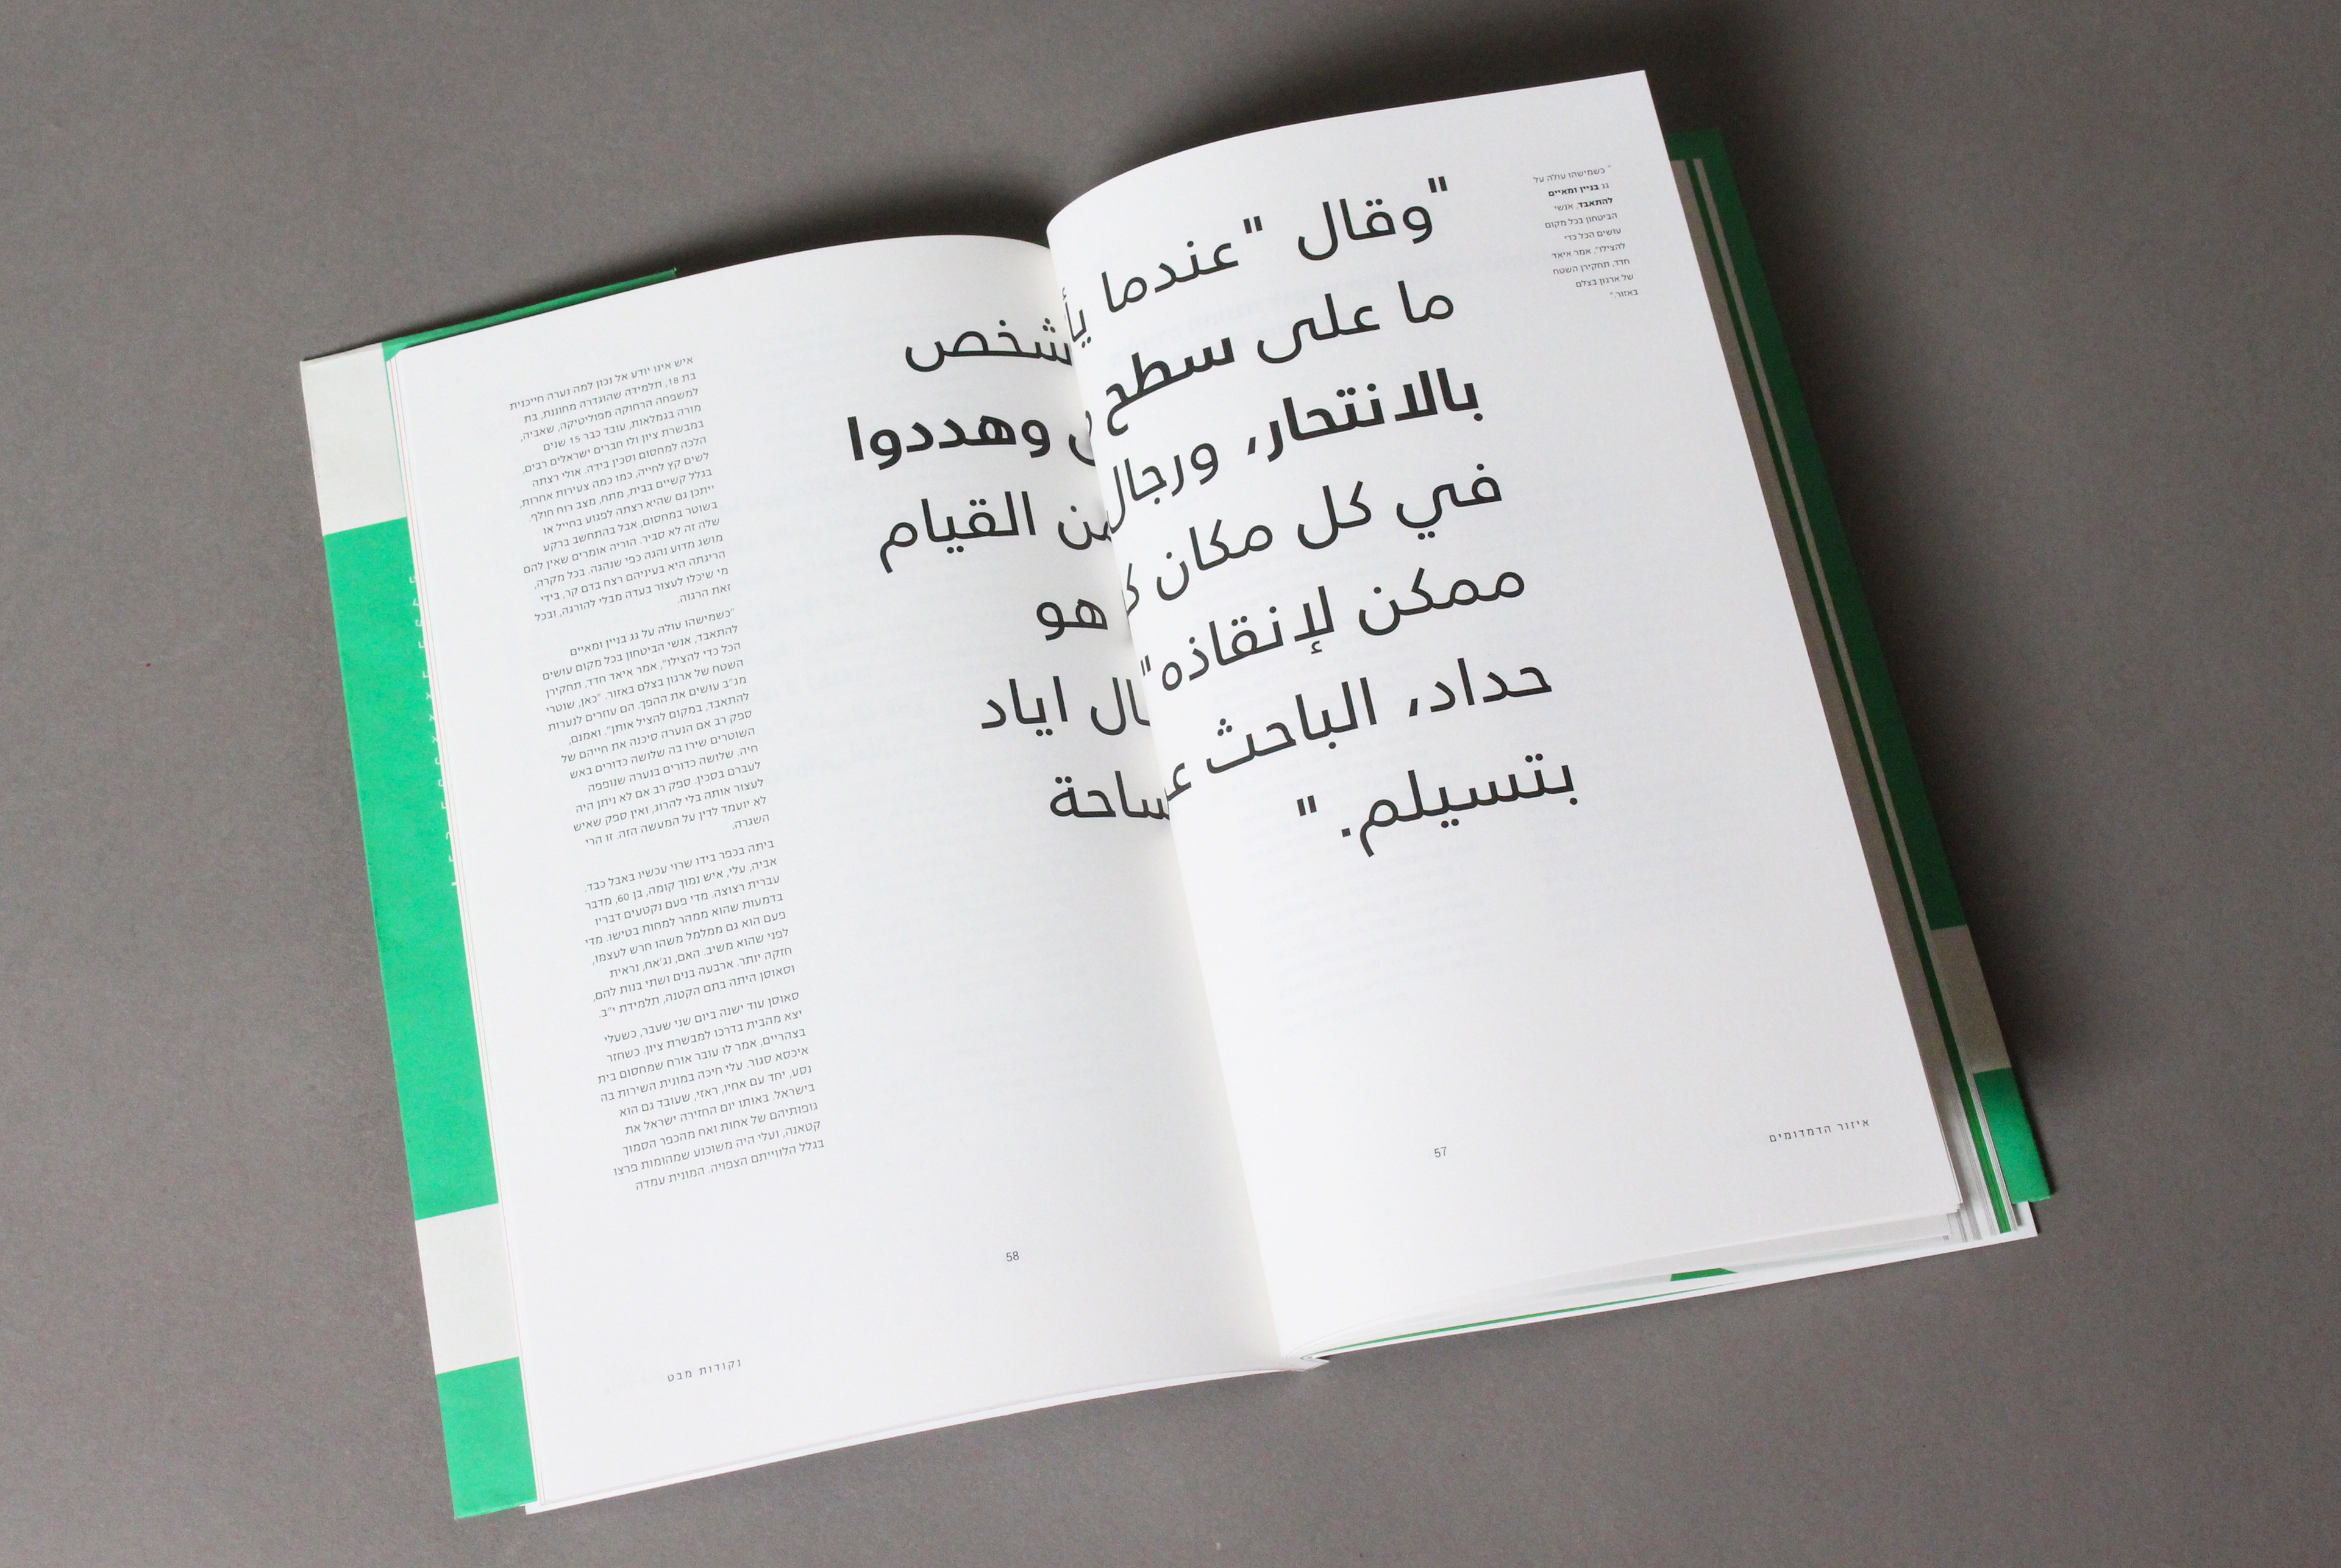 "כשמישהו עולה על
גג בניין ומאיים
להתאבד, אנשי
הביטחון בכל מקום
עושים הכל כדי
להצילו", אמר איאד
חדד, תחקירן השטח
של ארגון בצלם
באזור."
"وقال "عندما شخص
ما على سطح وهددوا
بالانتحار، ورجال من القيام
في كل مكان هو
ممكن لإنقاذه" اياد
حداد، الباحث ساحة
بتسيلم. "
57
איזור הדמדומים
איש אינו יודע אל נכון למה נערה חייכנית
בת 18, תלמידה שהוגדרה מחוננת, בת
למשפחה הרחוקה מפוליטיקה, שאביה,
מורה בגמלאות, עובד כבר 15 שנים
במבשרת ציון ולו חברים ישראלים רבים,
הלכה למחסום וסכין בידה. אולי רצתה
לשים קץ לחייה, כמו כמה צעירות אחרות,
בגלל קשיים בבית, מתח, מצב רוח חולף.
ייתכן גם שהיא רצתה לפגוע בחייל או
בשוטר במחסום, אבל בהתחשב ברקע
שלה זה לא סביר. הוריה אומרים שאין להם
מושג מדוע נהגה כפי שנהגה. בכל מקרה,
הריגתה היא בעיניהם רצח בדם קר, בידי
מי שיכלו לעצור בעדה מבלי להורגה, ובכל
זאת הרגוה.
"כשמישהו עולה על גג בניין ומאיים
להתאבד, אנשי הביטחון בכל מקום עושים
הכל כדי להצילו", אמר איאד חדד, תחקירן
השטח של ארגון בצלם באזור. "כאן, שוטרי
מג"ב עושים את ההפך. הם עוזרים לנערות
להתאבד, במקום להציל אותן". ואמנם,
ספק רב אם הנערה סיכנה את חייהם של
השוטרים שירו בה שלושה כדורים באש
חיה. שלושה כדורים בנערה שנופפה
לעברם בסכין. ספק רב אם לא ניתן היה
לעצור אותה בלי להרוג, ואין ספק שאיש
לא יועמד לדין על המעשה הזה. זו הרי
השגרה.
ביתה בכפר בידו שרוי עכשיו באבל כבד.
אביה, עלי, איש נמוך קומה, בן 60, מדבר
עברית רצוצה. מדי פעם נקטעים דבריו
בדמעות שהוא ממהר למחות בטישו. מדי
פעם הוא גם ממלמל משהו חרש לעצמו,
לפני שהוא משיב. האם, נג'אח, נראית
חזקה יותר. ארבעה בנים ושתי בנות להם,
וסאוסן היתה בתם הקטנה, תלמידת י"ב.
סאוסן עוד ישנה ביום שני שעבר, כשעלי
יצא מהבית בדרכו למבשרת ציון. כשחזר
בצהריים, אמר לו עובר אורח שמחסום בית
איכסא סגור. עלי חיכה במונית השירות בה
נסע, יחד עם אחיו, ראזי, שעובד גם הוא
בישראל. באותו יום החזירה ישראל את
גופותיהם של אחות ואח מהכפר הסמוך
קטאנה, ועלי היה משוכנע שמהומות פרצו
בגלל הלווייתם הצפויה. המונית עמדה
58
נקודות מבט